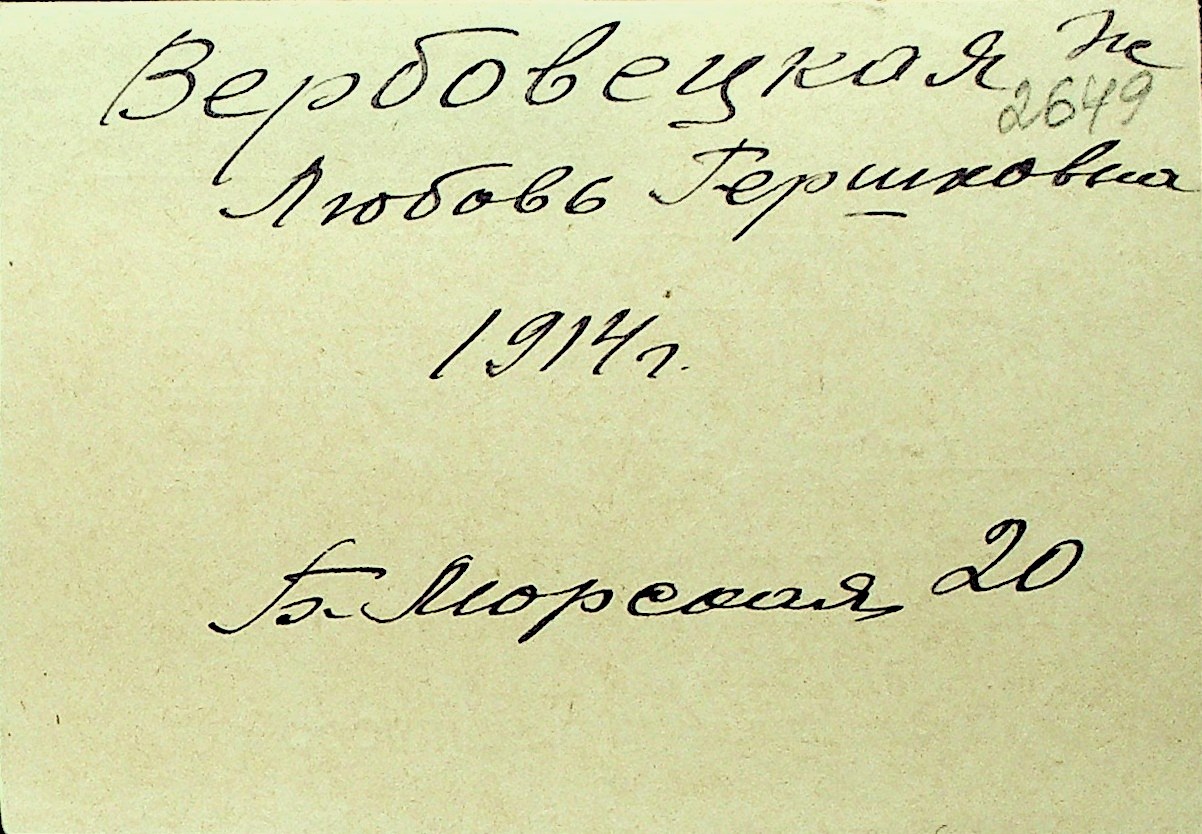 Вербовецкая
2649
Любовь Гершковна
1914 г.
Б. Морская, 20